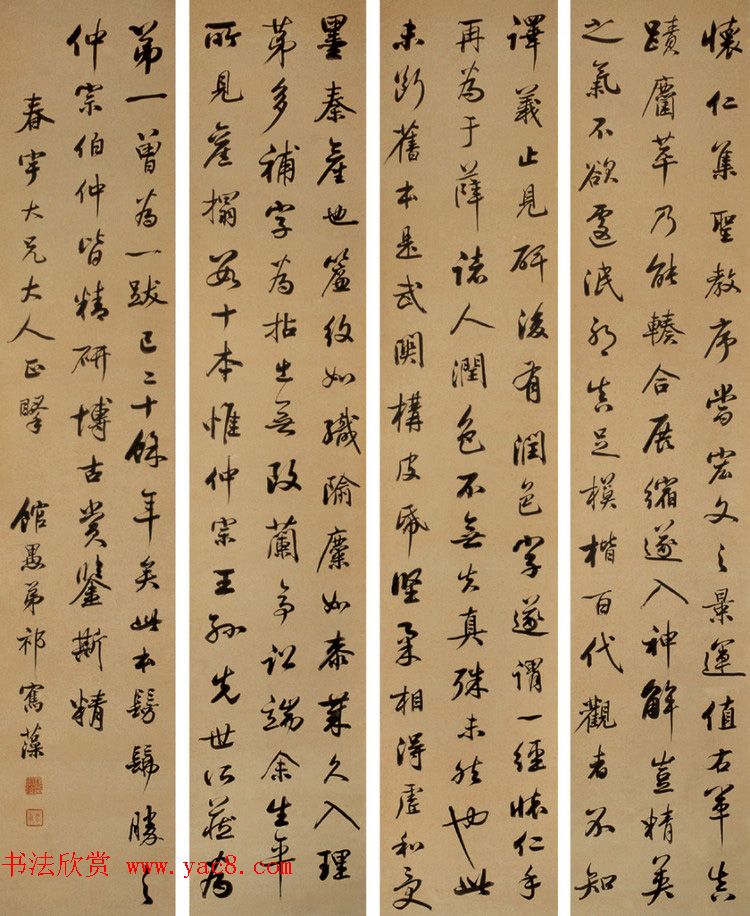 懷仁集聖教序當宏文之景運值右軍真
蹟麕萃乃能轃合展縮遂入神解豈精英
之氣不欲遽泯邪真足模楷百代觀者不知
譯義止見研後有潤色字遂謂一經懷仁手
再為于薛諸人潤色不無失真殊未然也此
未斷舊本是武關構皮紙堅柔相得虛和受
墨秦產也簾紋如織隃麋如泰萊久入理
第多補字為拈出無改蘭亭訟端余生平
所見舊搨數十本惟仲宗王孫先世所藏為
第一曾為一跋已二十餘年矣此本髣髴勝之
仲宗伯仲皆精研博古賞鑒斯精
春宇大兄大人正擊 館愚弟祁寯藻
书法欣赏 www.yac8.com